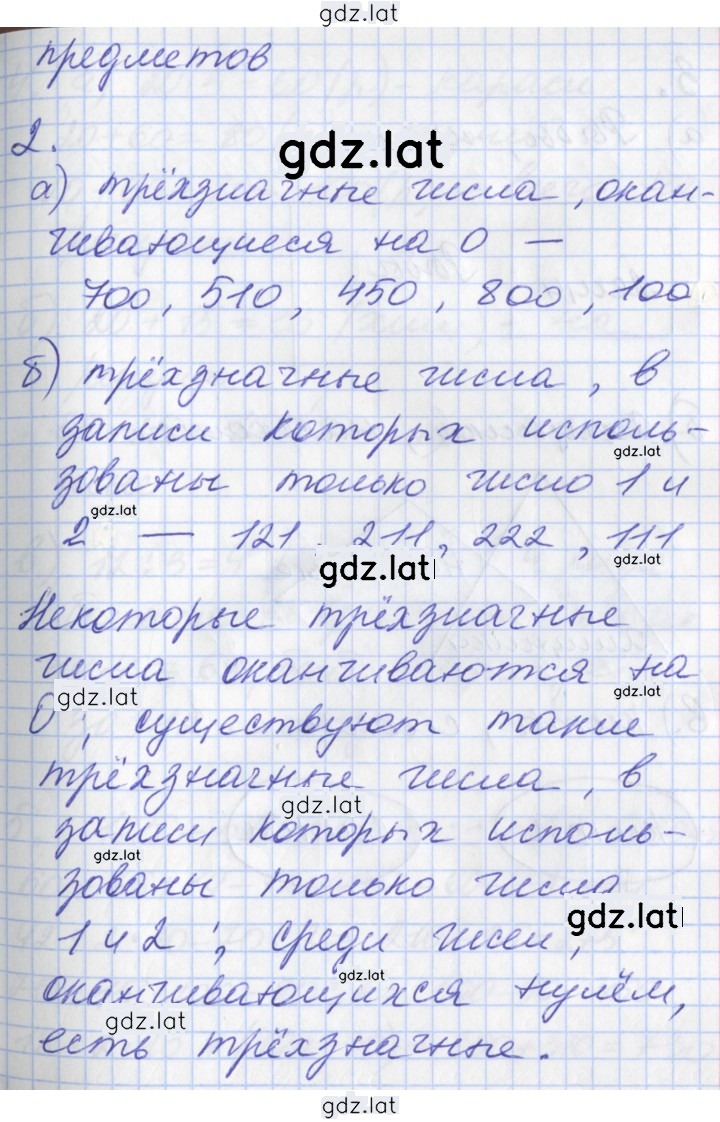 gdz.lat
предметов
2.
gdz.lat
а) трёхзначные числа, окан-
чивающиеся на 0 —
700, 510, 450, 800, 100
б) трёхзначные числа, в
записи которых исполь-
gdz.lat
зованы только число 1 и
gdz.lat
2 — 121, 211, 222, 111
gdz.lat
gdz.lat
Некоторые трёхзначные
числа оканчиваются на
gdz.lat
gdz.lat
0; существуют такие
трёхзначные числа, в
gdz.lat
записи которых исполь-
gdz.lat
зованы только числа
gdz.lat
1 и 2; среди чисел,
gdz.lat
оканчивающихся нулём,
gdz.lat
есть трёхзначные.
gdz.lat